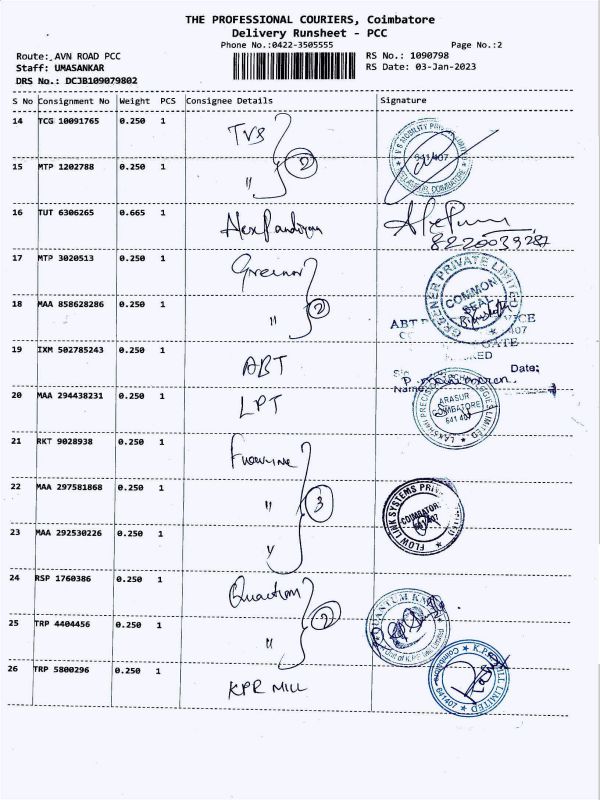 THE PROFESSIONAL COURIERS, Coimbatore
Delivery Runsheet - PCC
Phone No.:0422-3505555 Page No.:2
Route: AVN ROAD PCC RS No.: 1090798
Staff: UMASANKAR RS Date: 03-Jan-2023
DRS No.: DCJB109079802
S No Consignment No Weight PCS Consignee Details Signature
14 TCG 10091765 0.250 1 TVS
TVS MOBILITY PRIVATE LIMITED 641 407 COIMBATORE
15 MTP 1202788 0.250 1 " 2
16 TUT 6306265 0.665 1 Alex Pandiyan
8220039287
17 MTP 3020513 0.250 1
GREENER PRIVATE LIMITED COMMON SEAL
18 MAA 858628286 0.250 1 " 2
19 IXM 502785243 0.250 1 ABT
Date:
Name
20 MAA 294438231 0.250 1 LPT
ARASUR 641 407 LIMITED
21 RKT 9028938 0.250 1
22 MAA 297581868 0.250 1 " 3
FLOW LINK SYSTEMS
23 MAA 292530226 0.250 1
24 RSP 1760386 0.250 1
QUANTUM
25 TRP 4404456 0.250 1 " 2
Limited
26 TRP 5800296 0.250 1 KPR MILL
K.P.R. MILL LIMITED 641407